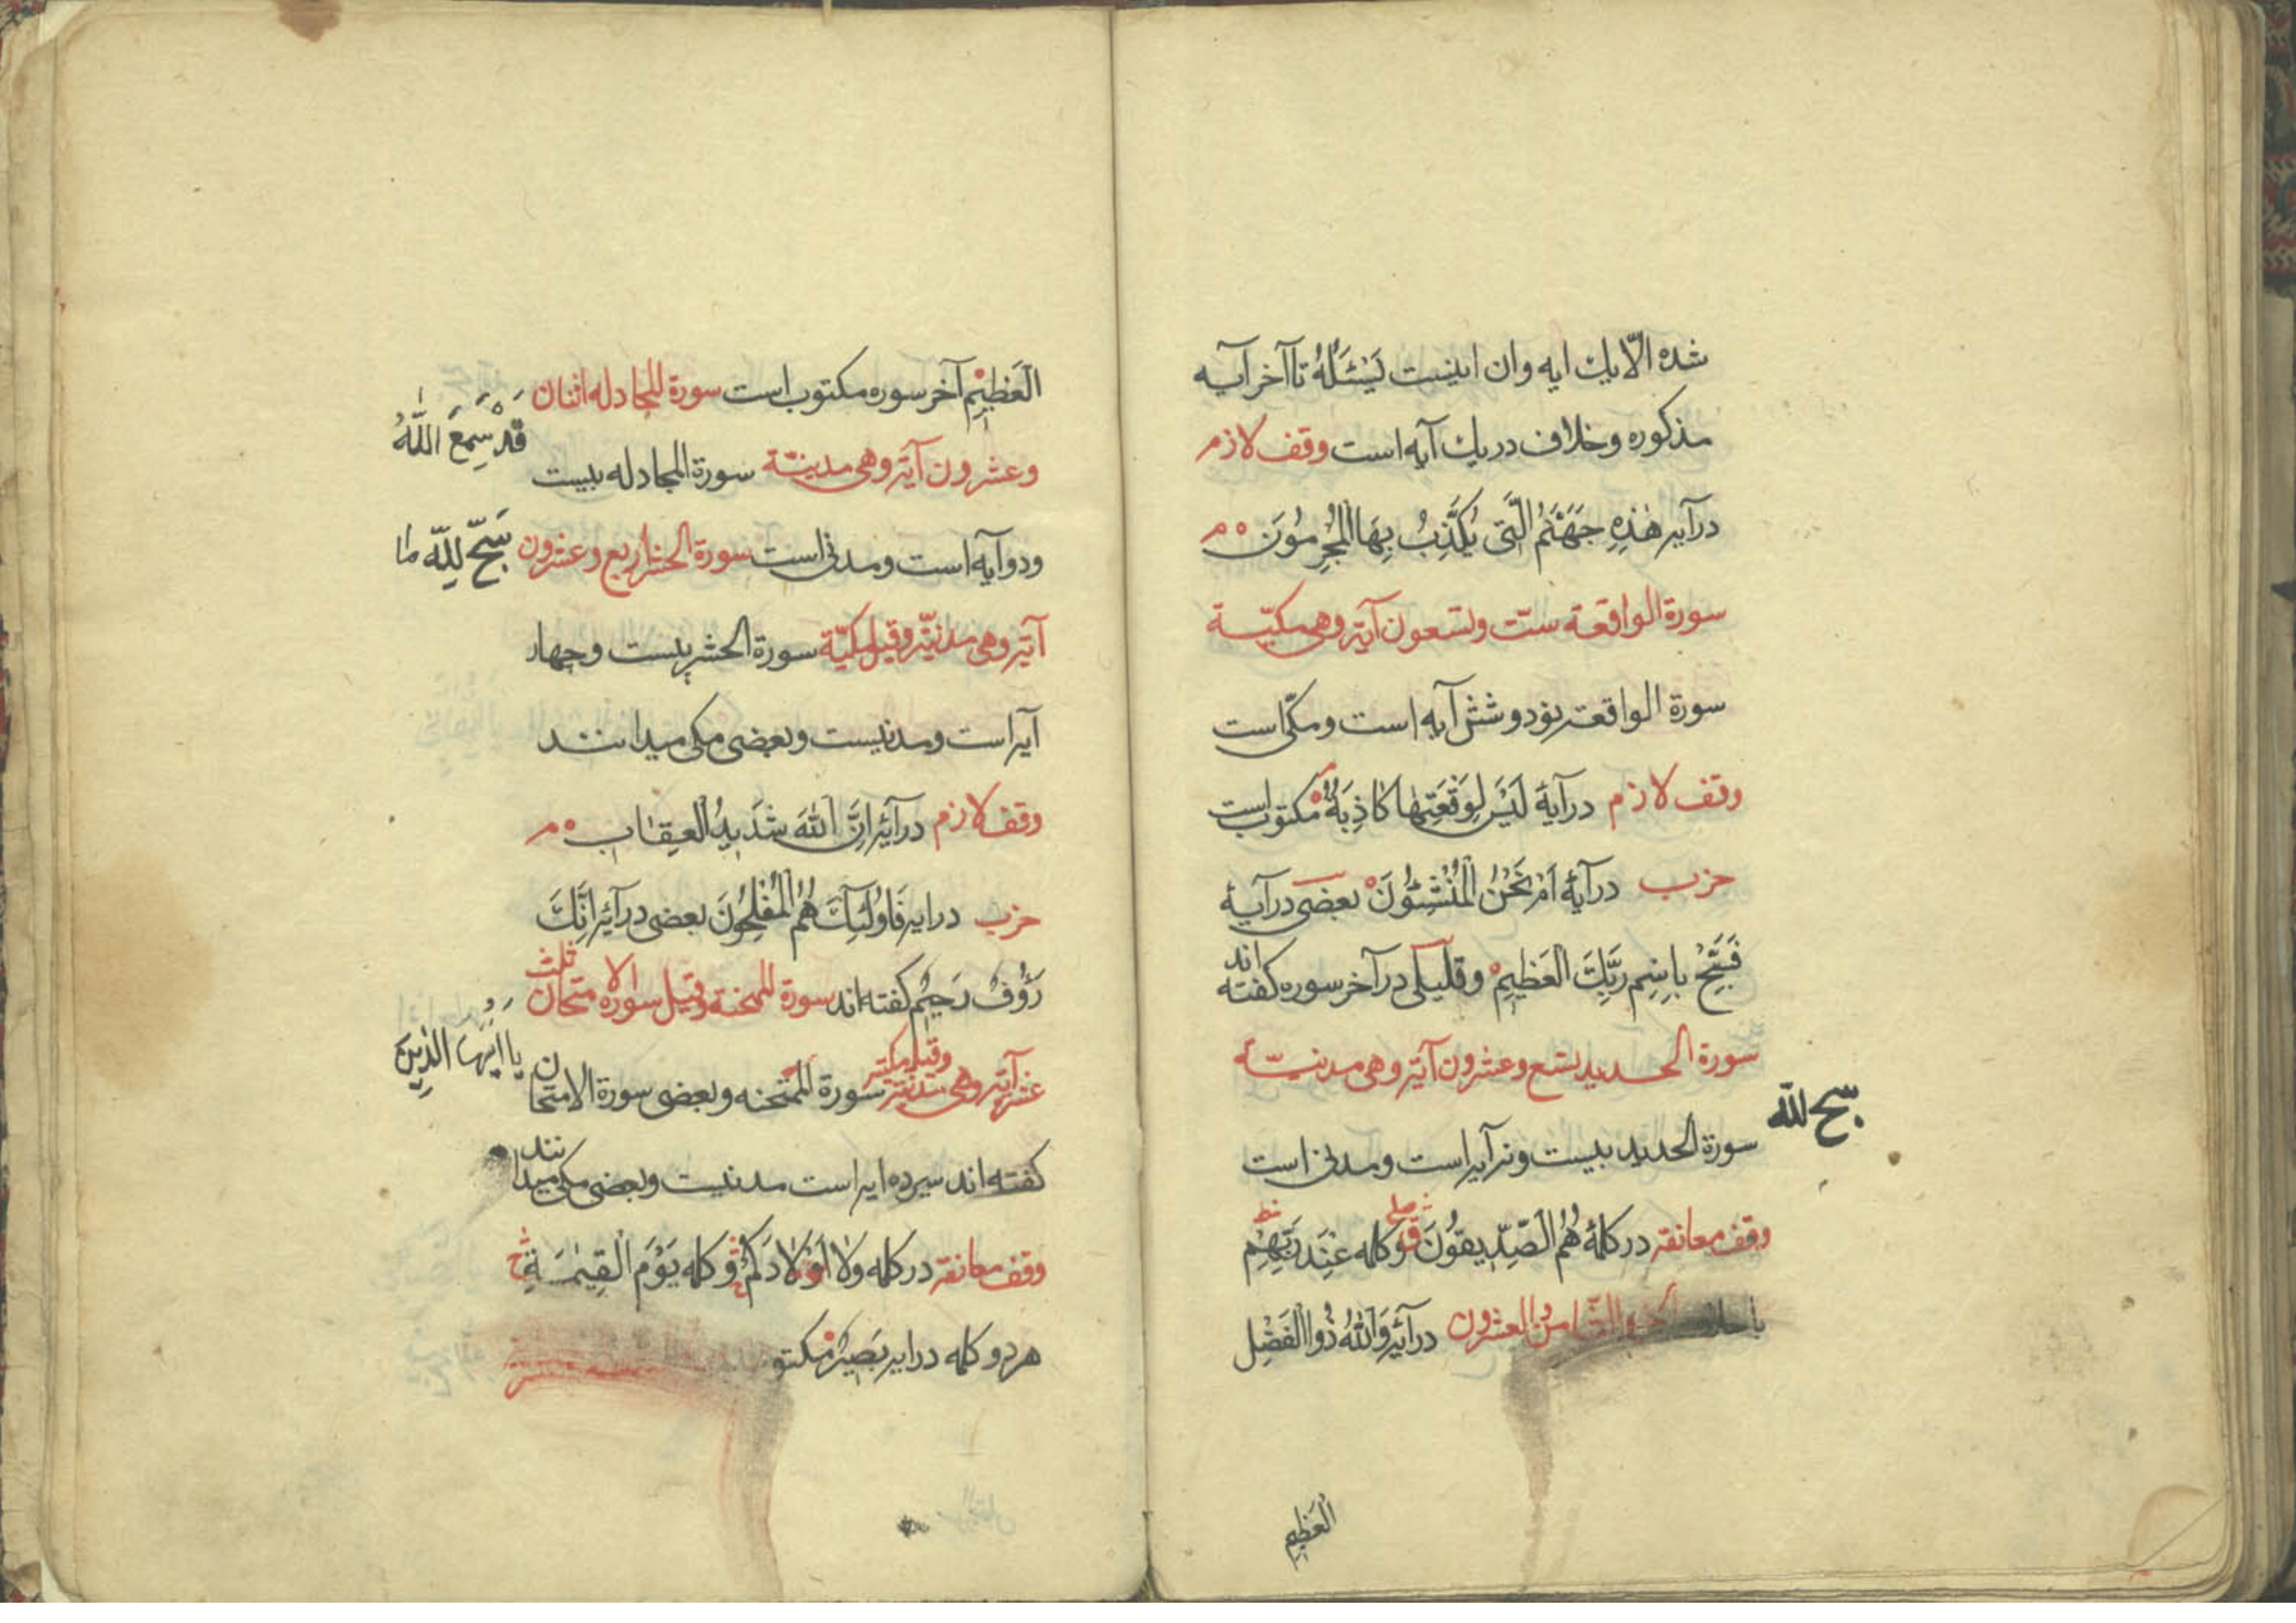 شده الّا یك ایه وان اینست یَسْئَلُهُ تا آخر آیه
مذکوره وخلاف در یك آیه است وقف لازم
در آیه هٰذِهِ جَهَنَّمُ الَّتی یُکَذِّبُ بِهَا الْمُجْرِمُونَ م
سورة الواقعة ستّ وتسعون آیة وهی مکیّة
سورة الواقعة نود و شش آیه است ومکّی است
وقف لازم در آیهٔ لَیْسَ لِوَقْعَتِهٰا کٰاذِبَةٌ م مکتوب است
حزب در آیهٔ اَمْ نَحْنُ الْمُنْشِئُونَ بعضی در آیهٔ
فَسَبِّحْ بِاسْمِ رَبِّكَ الْعَظیمِ وقلیلی در آخر سوره کفته اند
سورة الحدید تسع وعشرون آیة وهی مدنیّة
سبح لله
سورة الحدید بیست ونه آیه است ومدنی است
وقف معانقه در کلمهٔ هُمُ الصِّدّیقُونَ وکلمه عِنْدَ رَبِّهِمْ
الثامن والعشرون در آیه وَاللّٰهُ ذُوا الْفَضْلِ
الْعَظیمِ
الْعَظیمِ آخر سوره مکتوب است سورة المجادله اثنان
قَدْ سَمِعَ اللّٰهُ
وعشرون آیة وهی مدینّة سورة المجادله بیست
ودو آیه است ومدنی است سورة الحشر اربع وعشرون
سَبَّحَ لِلّٰهِ مٰا
آیة وهی مدنیّة وقیل مکیّة سورة الحشر بیست وچهار
آیه است ومدنیست وبعضی مکی میدانند
وقف لازم در آیه اِنَّ اللّٰهَ شَدیدُ الْعِقٰابِ م
حزب در ایه فَاُولٰئِكَ هُمُ الْمُفْلِحُونَ بعضی در آیه اِنَّكَ
رَؤُفٌ رَحیمٌ کفته اند سورة الممتحنة وقیل سورة الامتحان ثلث
یٰا اَیُّهَا الَّذینَ
عشر آیة وهی مدنیة وقیل مکیة سورة الممتحنه وبعضی سورة الامتحان
کفته اند سیزده ایه است مدنیست وبعضی مکی میدانند
وقف معانقه در کلمه وَلٰا اَوْلٰادُکُمْ وکلمه یَوْمَ الْقِیٰمَةِ
هر دو کلمه در ایه بَصیرٌ مکتو